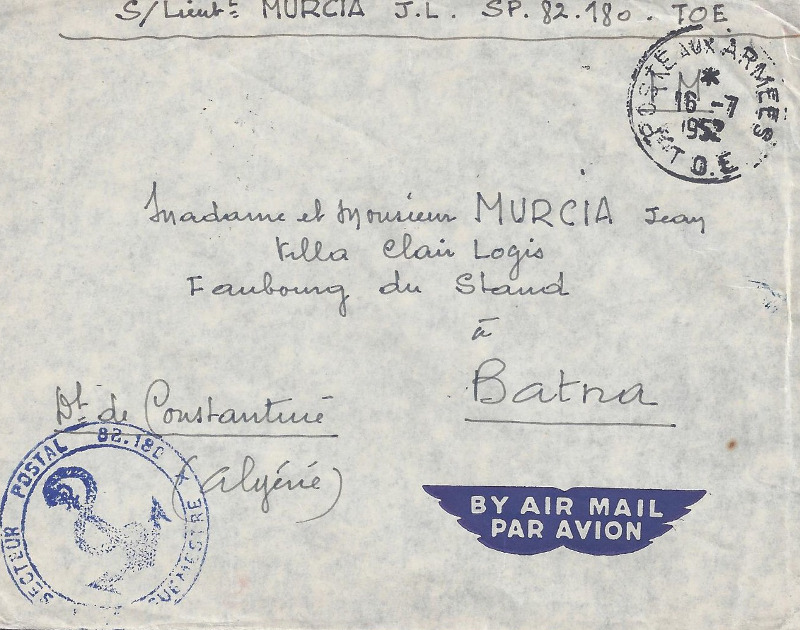 S/Lieut t MURCIA J.L. SP. 82.180. TOE
POSTE AUX ARMEES
T.O.E
*
16 -7
1952
Madame et Monsieur MURCIA Jean
Villa Clair Logis
Faubourg du Stand
à
Batna
Dt de Constantine
(Algérie)
SECTEUR POSTAL 82.180
BY AIR MAIL
PAR AVION